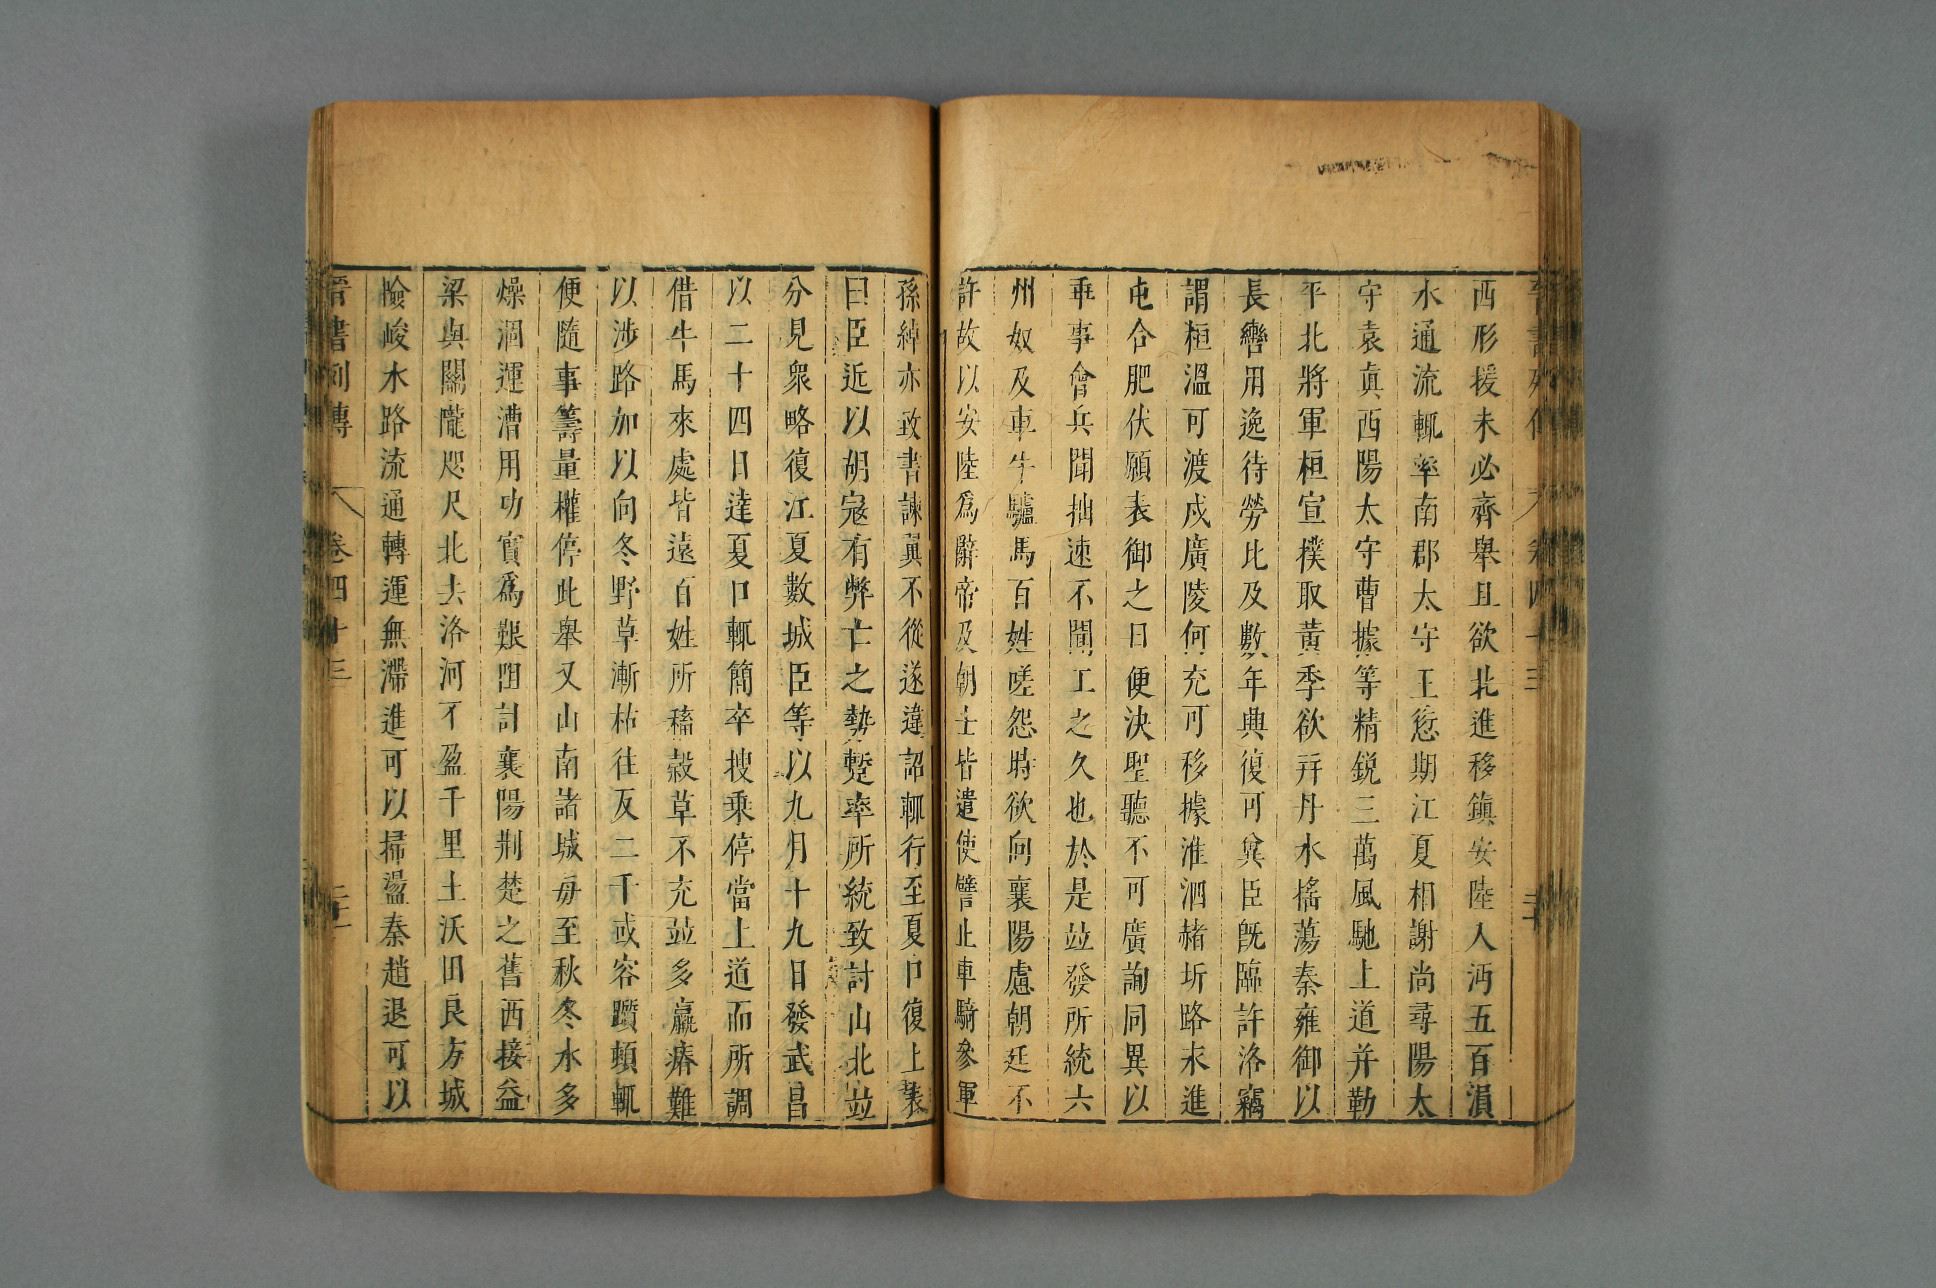 晉書列傳 卷四十三
西形援未必齊舉且欲北進移鎮安陸入沔五百溳
水通流輒率南郡太守王愆期江夏相謝尚尋陽太
守袁真西陽太守曹據等精銳三萬風馳上道并勒
平北將軍桓宣撲取黃季欲并丹水搖蕩秦雍御以
長轡用逸待勞比及數年興復可冀臣旣臨許洛竊
謂桓溫可渡戍廣陵何充可移據淮泗赭圻路永進
屯合肥伏願表御之日便決聖聽不可廣詢同異以
乖事會兵聞拙速不聞工之久也於是竝發所統六
州奴及車牛驢馬百姓嗟怨時欲向襄陽慮朝廷不
許故以安陸爲辭帝及朝士皆遣使譬止車騎參軍
孫綽亦致書諫翼不從遂違詔輒行至夏口復上表
曰臣近以胡寇有弊亡之勢蹔率所統致討山北竝
分見衆略復江夏數城臣等以九月十九日發武昌
以二十四日達夏口輒簡卒搜乘停當上道而所調
借牛馬來處皆遠百姓所稸穀草不充竝多羸瘠難
以涉路加以向冬野草漸枯往反二千或容躓頓輒
便隨事籌量權停此舉又山南諸城每至秋冬水多
燥涸運漕用功實爲艱阻計襄陽荆楚之舊西接益
梁與關隴咫尺北去洛河不盈千里土沃田良方城
險峻水路流通轉運無滯進可以掃盪秦趙退可以
晉書列傳 卷四十三